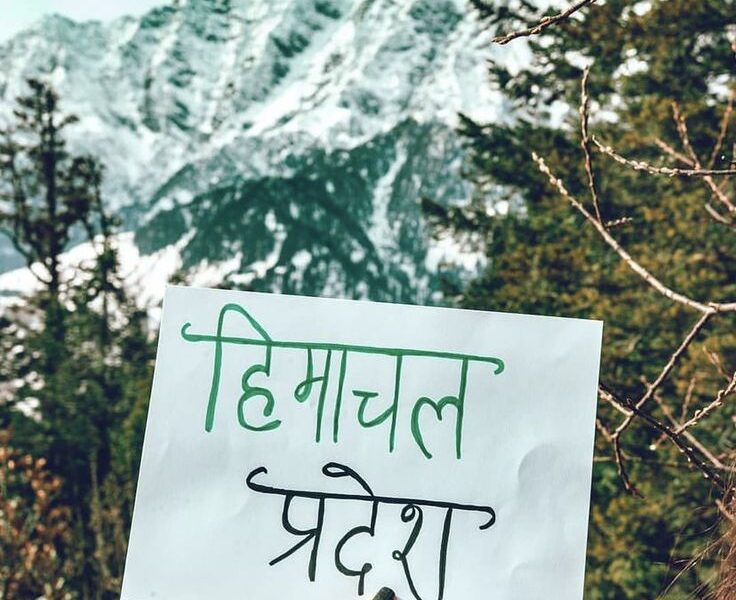 हिमाचल
प्रदेश